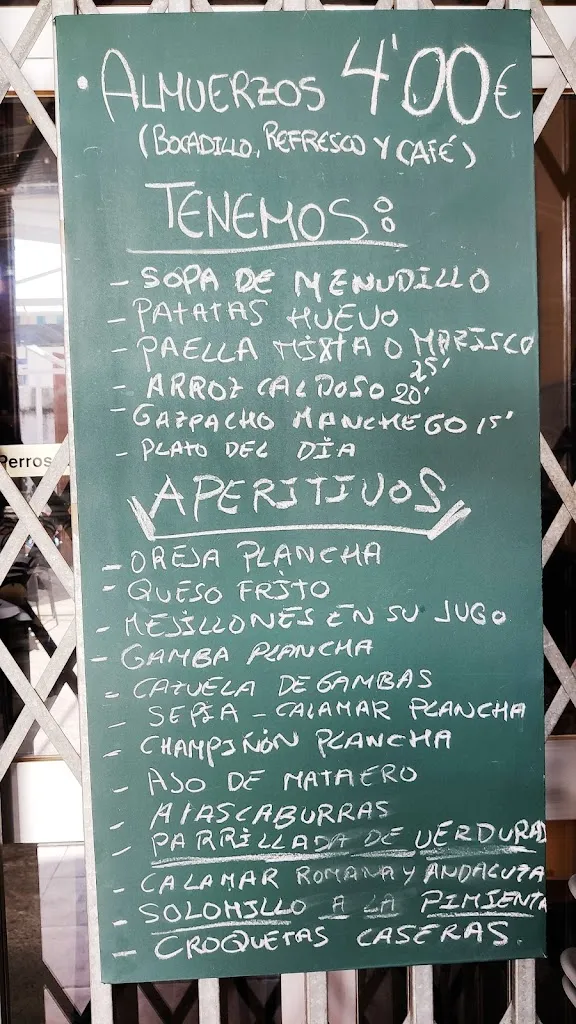 • ALMUERZOS 4'00€
(BOCADILLO, REFRESCO Y CAFÉ)
TENEMOS:
- SOPA DE MENUDILLO
- PATATAS HUEVO
- PAELLA MIXTA O MARISCO
25'
- ARROZ CALDOSO 20'
- GAZPACHO MANCHEGO 15'
- PLATO DEL DÍA
Perros
APERITIVOS
- OREJA PLANCHA
- QUESO FRITO
- MEJILLONES EN SU JUGO
- GAMBA PLANCHA
- CAZUELA DE GAMBAS
- SEPIA - CALAMAR PLANCHA
- CHAMPIÑÓN PLANCHA
- AJO DE MATAERO
- ATASCABURRAS
- PARRILLADA DE VERDURAS
- CALAMAR ROMANA Y ANDALUZA
- SOLOMILLO A LA PIMIENTA
- CROQUETAS CASERAS.